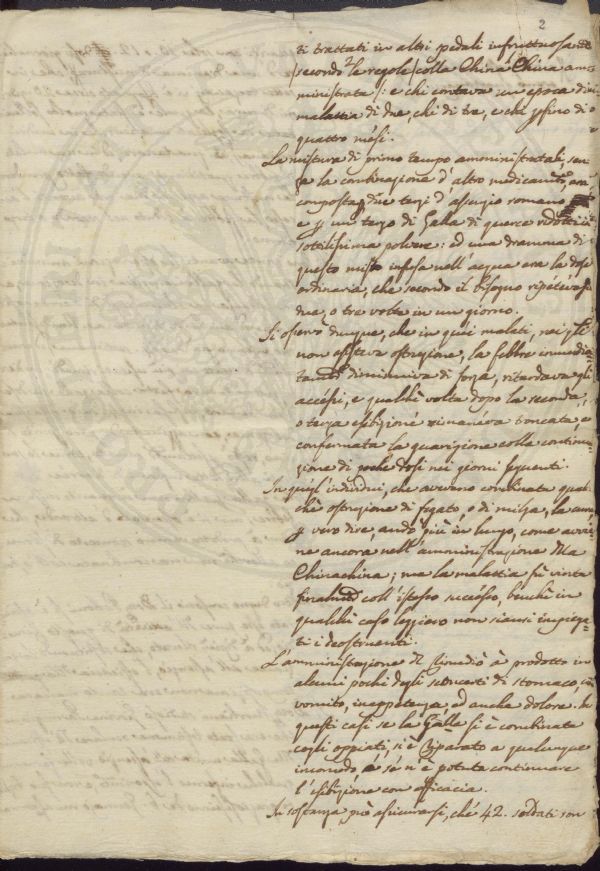 2
ti trattati in altri spedali infruttuosamte
secondo le regole colla China China amm
ministrata: e chi contava un epoca di
malattia di due, chi di tre, e chi pfino di
quattro mesi.
La mistura di primo tempo amministratali, sen
za la combinazione d'altro medicamto, era
composta di due terzi d'assenzio romano
e p un terzo di Galla di querce ridotti in
sotilissima polvere: ed una dramma di
questo misto infusa nell'acqua era la dose
ordinaria, che secondo il bisogno ripetevasi
due, o tre volte in un giorno.
Si osservò dunque, che in quei malati, nei qli
non esisteva ostruzione, la febbre immedia-
tamte diminuiva di forza, ritardava gli
accessi, e qualche volta dopo la seconda,
o terza esibizione rimaneva troncata, e
confermata la guarigione colla continua-
zione di poche dosi nei giorni seguenti.
In quegl'individui, che avevano combinata qual
che ostruzione di fegato, o di milza, la cura
p vero dire, andò più in lungo, come avvie
ne ancora nell'amministrazione della
Chinachina; ma la malattia fù vinta
finalmte coll'istesso successo, benchè in
qualche caso leggiero non siansi impiega-
ti i deostruenti.
L'amministrazione del Rimedio à prodotto in
alcuni pochi degli sconcerti di stomaco, con
vomito, inappetenza, ed anche dolore. In
questi casi se la Galla si è combinata
cogli oppiati, si è riparato a qualunque
incomodo, e se n'è potuta continuare
l'esibizione con efficacia.
In sostanza può assicurarsi, che 42. soldati son